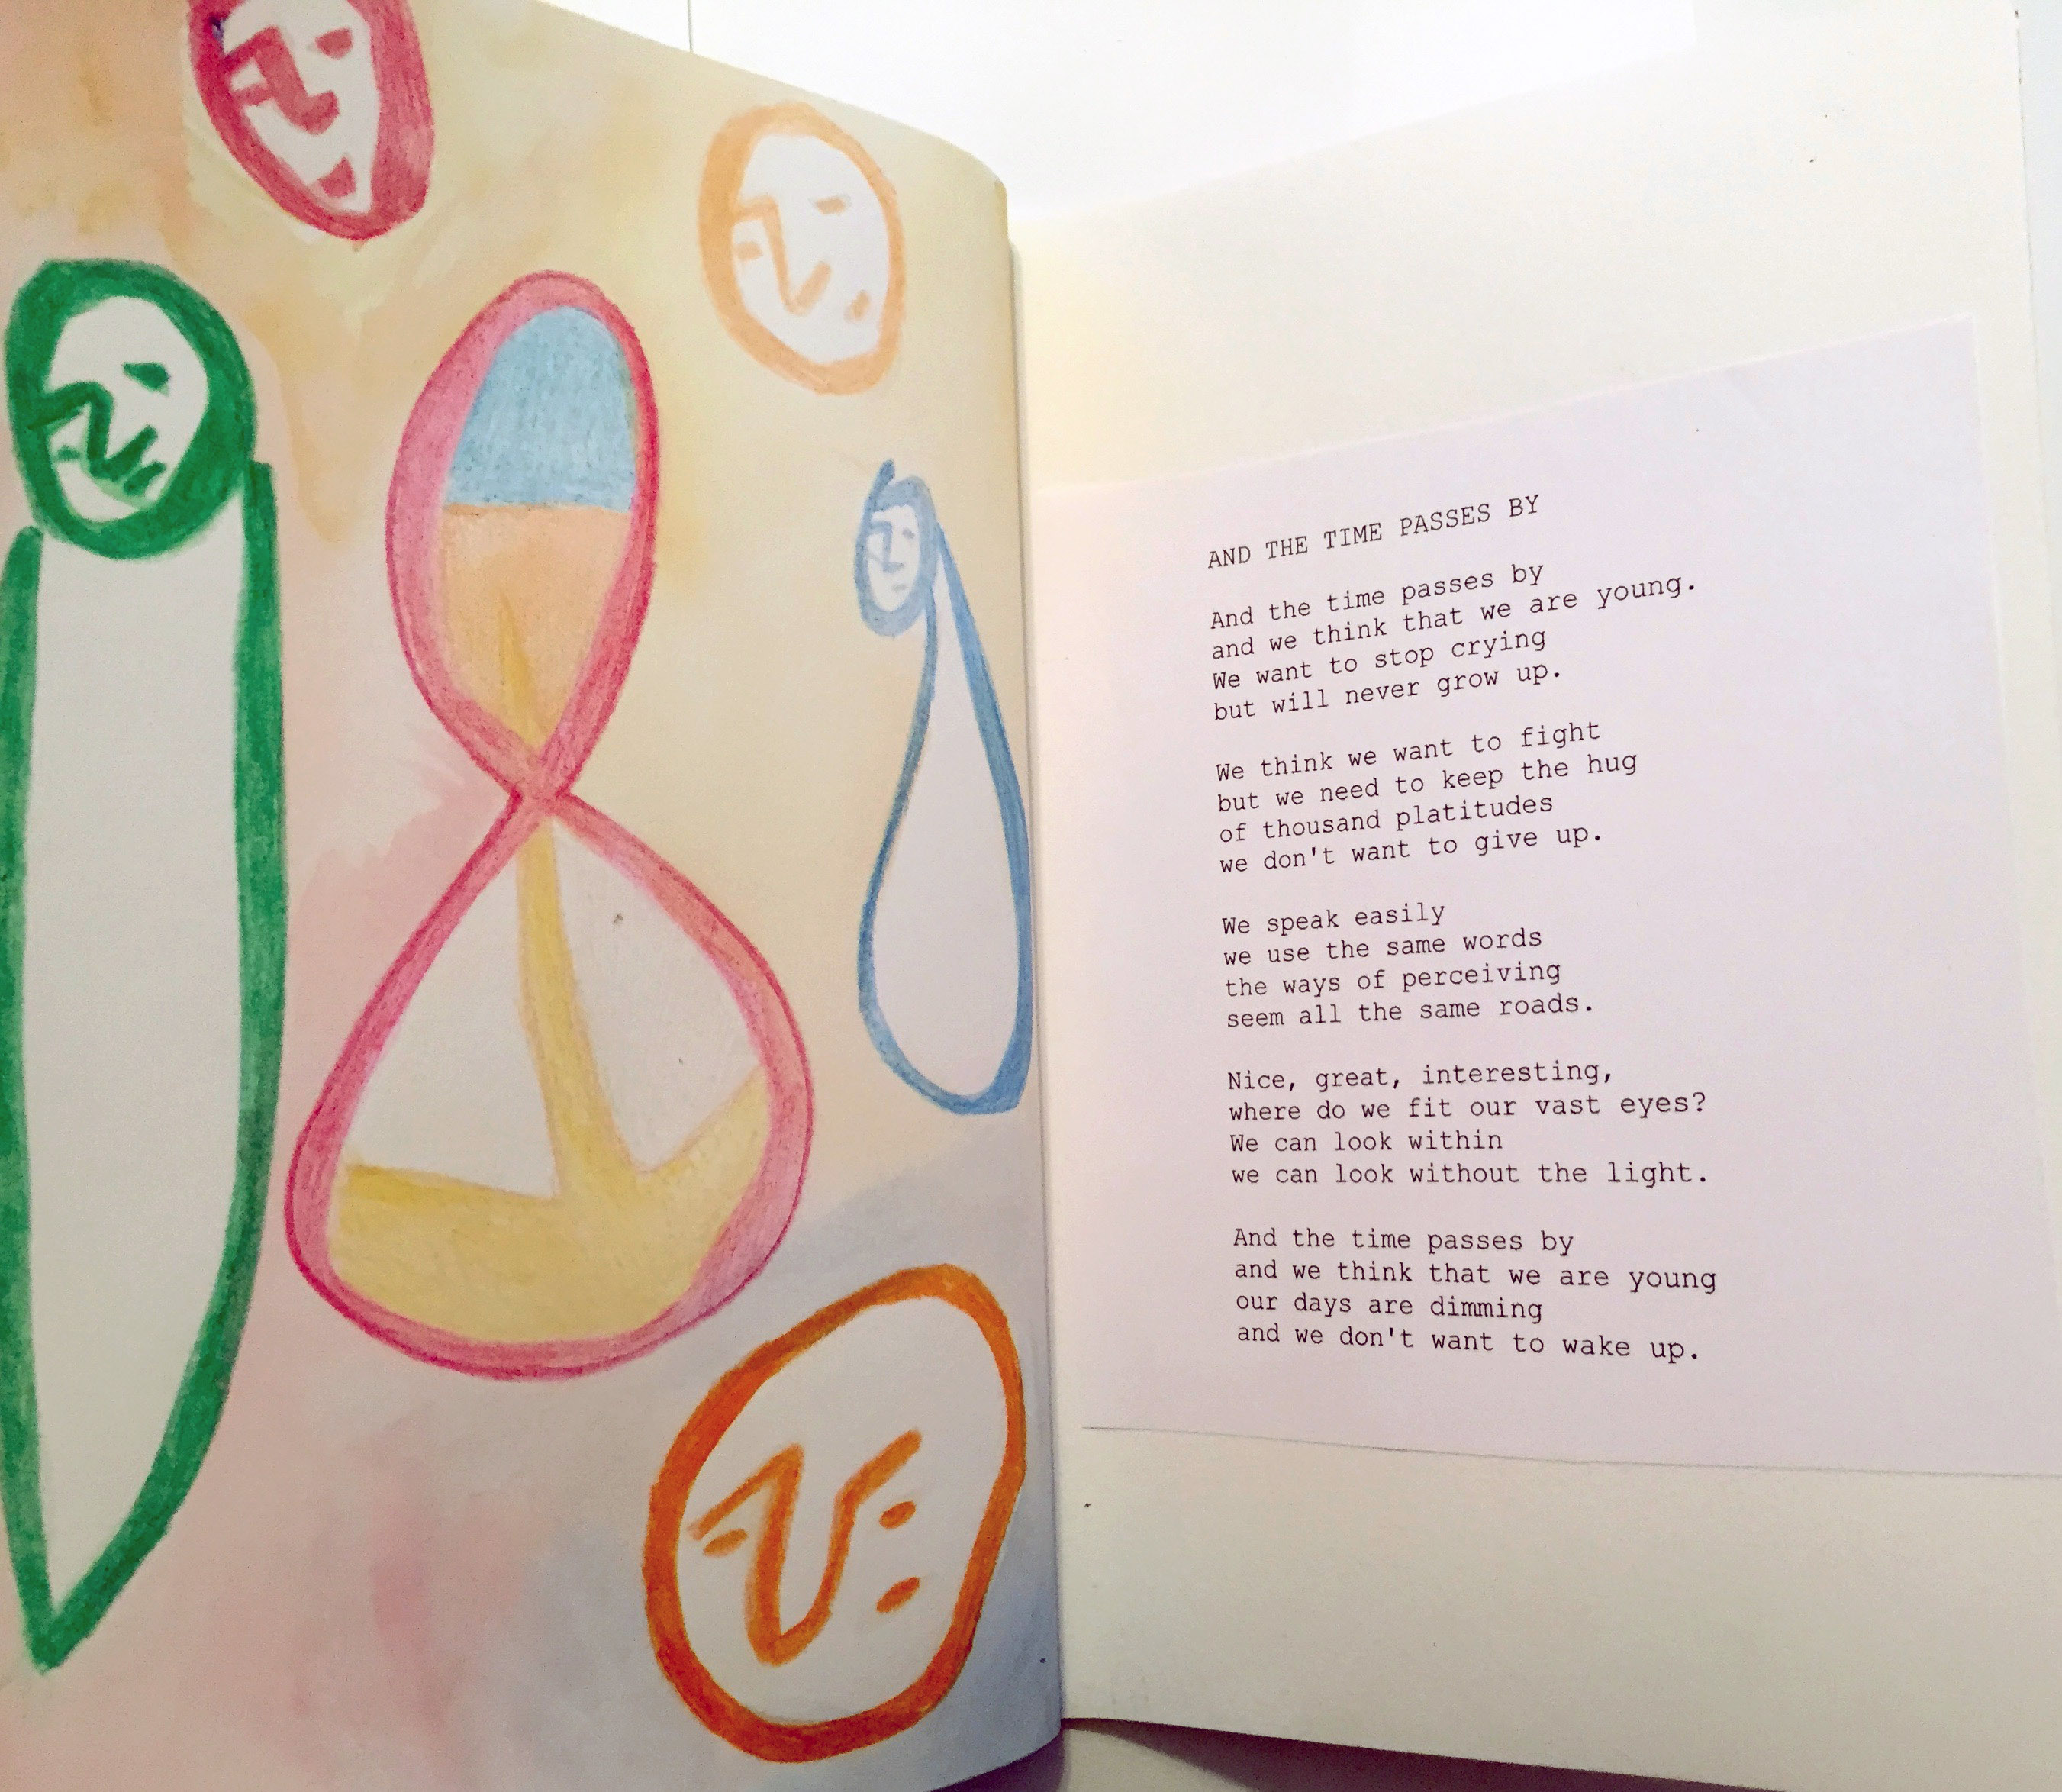 AND THE TIME PASSES BY
And the time passes by
and we think that we are young.
We want to stop crying
but will never grow up.
We think we want to fight
but we need to keep the hug
of thousand platitudes
we don't want to give up.
We speak easily
we use the same words
the ways of perceiving
seem all the same roads.
Nice, great, interesting,
where do we fit our vast eyes?
We can look within
we can look without the light.
And the time passes by
and we think that we are young
our days are dimming
and we don't want to wake up.